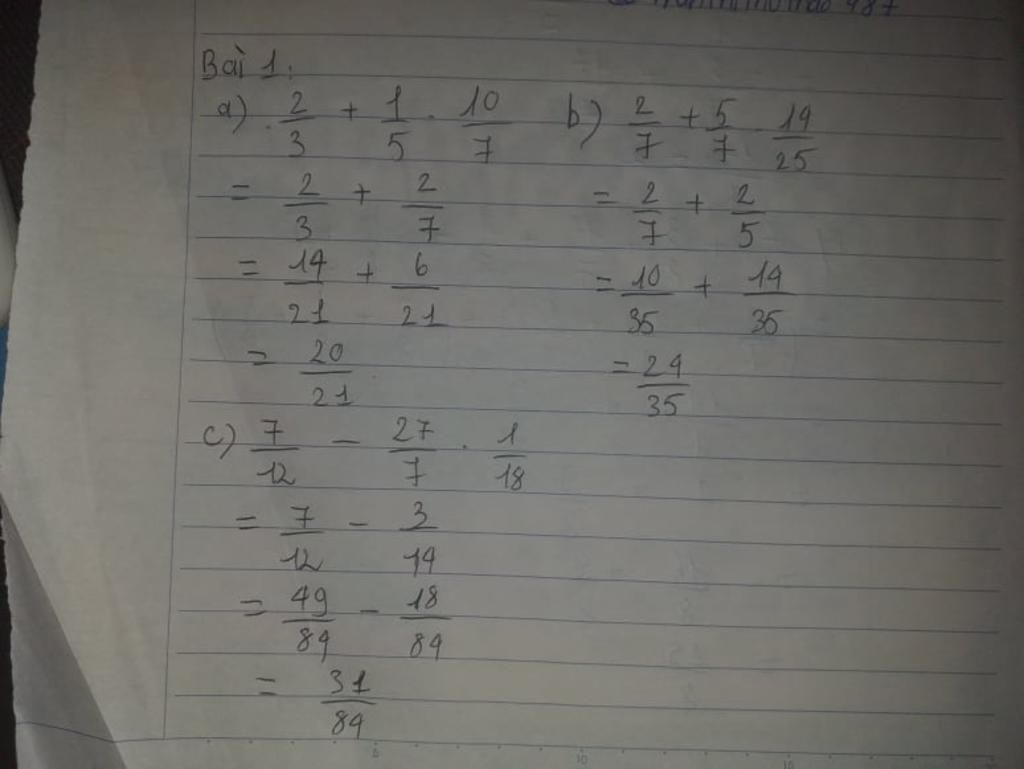 Bài 1:
a) 2/3 + 1/5 . 10/7
= 2/3 + 2/7
= 14/21 + 6/21
= 20/21
b) 2/7 + 5/7 . 14/25
= 2/7 + 2/5
= 10/35 + 14/35
= 24/35
c) 7/12 - 27/7 . 1/18
= 7/12 - 3/14
= 49/84 - 18/84
= 31/84